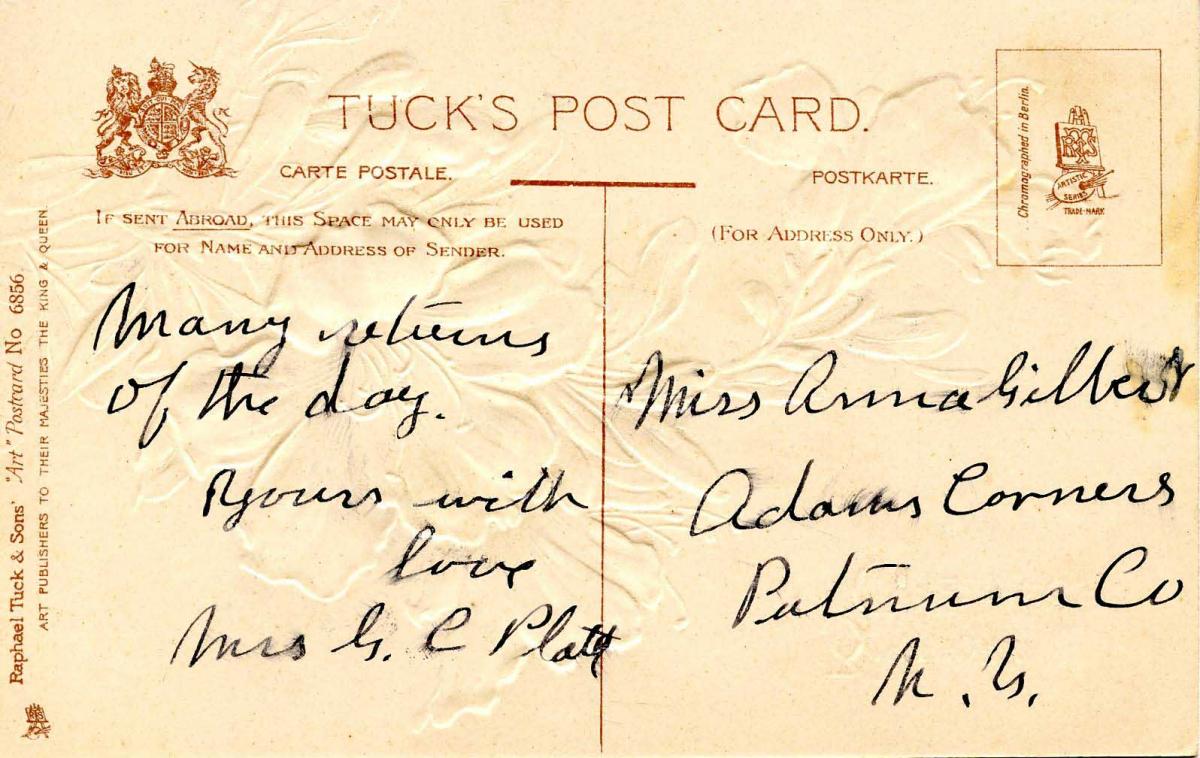 TUCK'S POST CARD.
CARTE POSTALE.
POSTKARTE.
IF SENT ABROAD, THIS SPACE MAY ONLY BE USED
FOR NAME AND ADDRESS OF SENDER.
(FOR ADDRESS ONLY.)
Chromographed in Berlin.
RTS
ARTISTIC
SERIES
TRADE-MARK
Raphael Tuck & Sons' "Art" Postcard No 6856.
ART PUBLISHERS TO THEIR MAJESTIES THE KING & QUEEN.
Many returns
of the day.
Yours with
love
Mrs G. C Platt
Miss Anna Gilbert
Adams Corners
Putnum Co
N. Y.